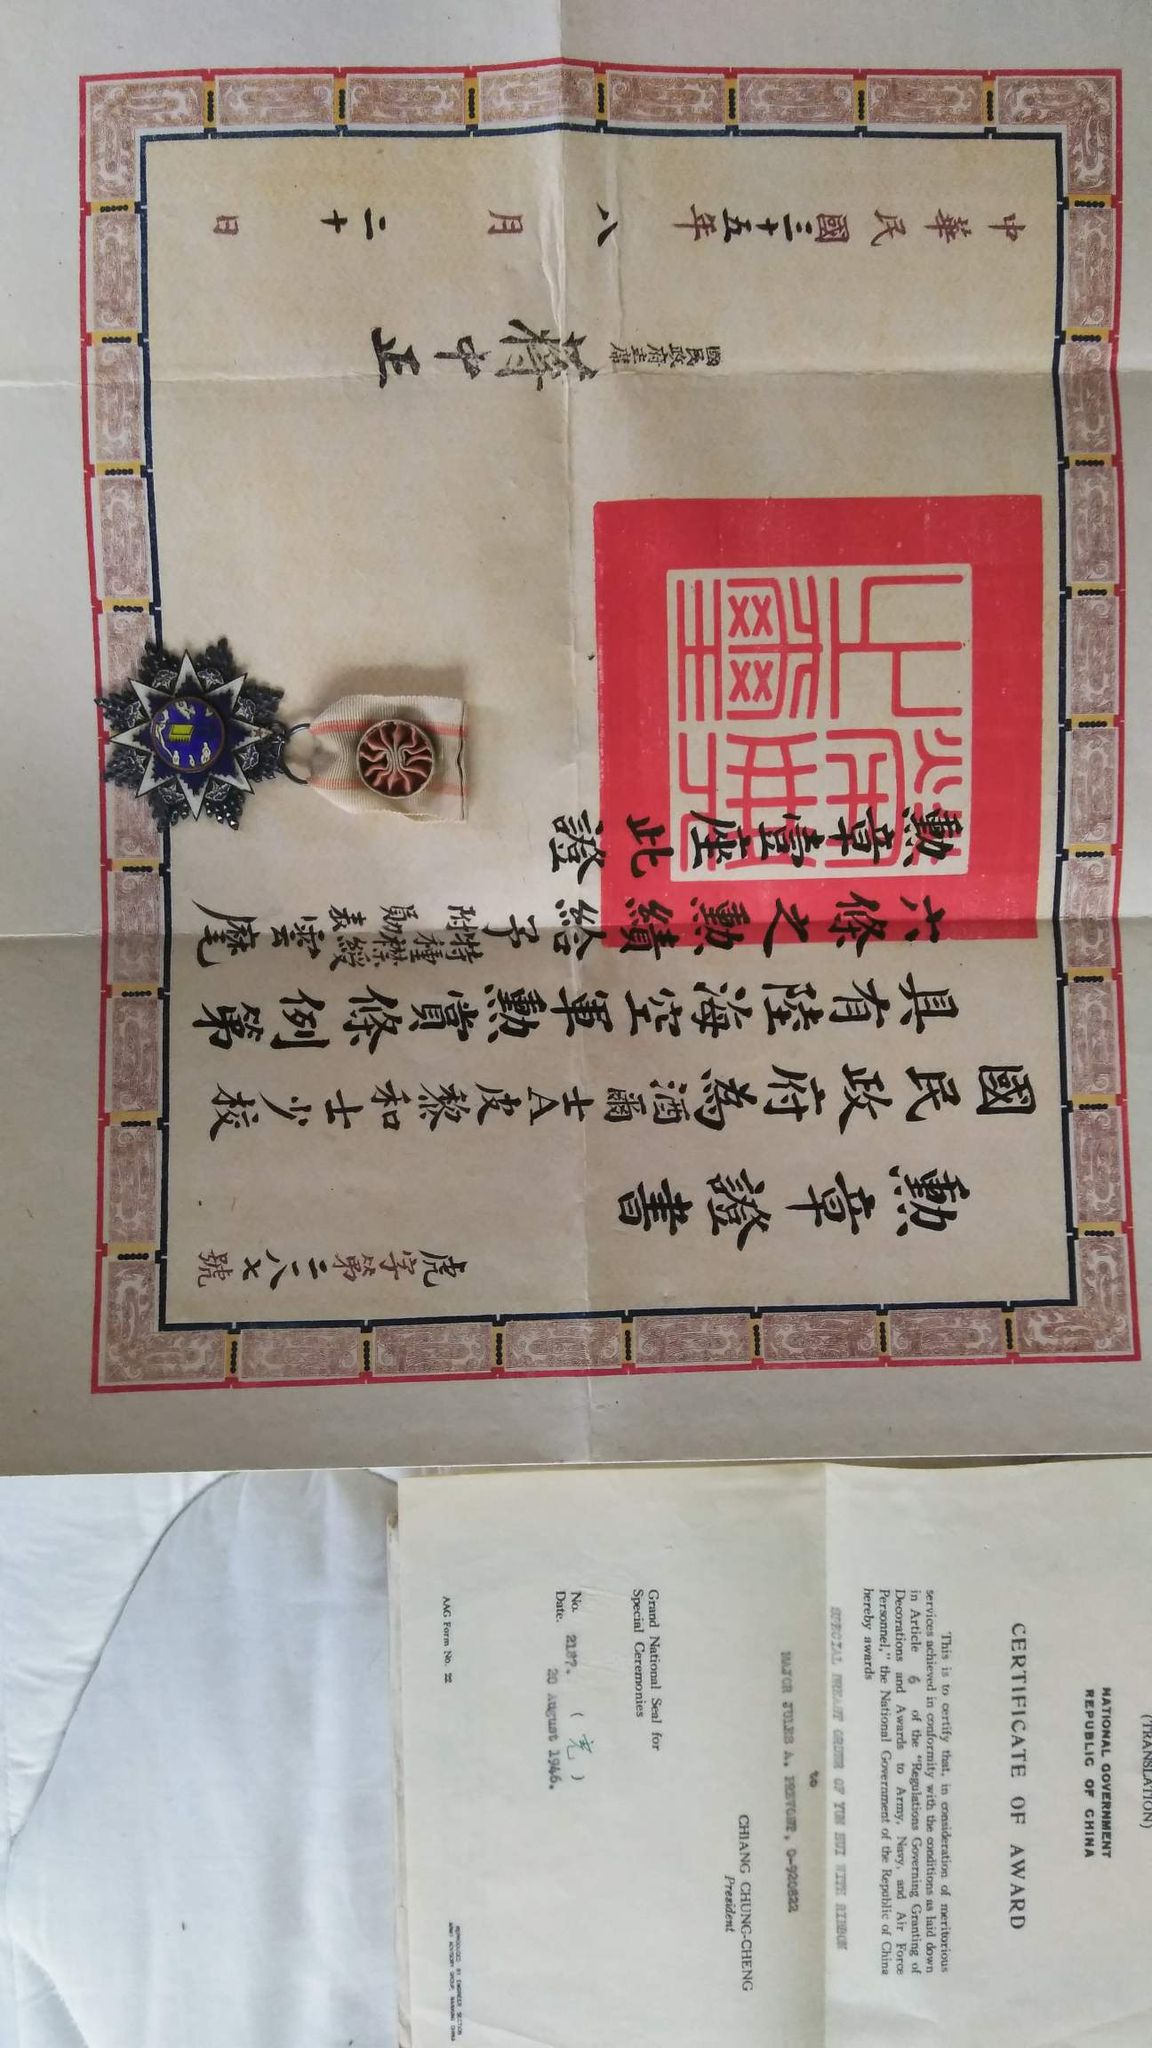 虎字第二一八七號
勳章證書
國民政府為酒爾士A皮黎和士少校
具有陸海空軍勳賞條例第
六條之勳績給予
特種襟綬
附勛表
雲麾
勳章壹座此證
國民政府主席
蔣中正
中華民國三十五年八月二十日
(TRANSLATION)
NATIONAL GOVERNMENT
REPUBLIC OF CHINA
CERTIFICATE OF AWARD
This is to certify that, in consideration of meritorious
services achieved in conformity with the conditions as laid down
in Article 6 of the "Regulations Governing Granting of
Decorations and Awards to Army, Navy, and Air Force
Personnel," the National Government of the Republic of China
hereby awards
SPECIAL ORDER OF YUN HUI WITH RIBBON
to
MAJOR JULES A. PREVOST, O-920822
CHIANG CHUNG-CHENG
President
Grand National Seal for
Special Ceremonies
No. 2187.
Date. 20 August 1946.
AAG Form No. 22
REPRODUCED BY ENGINEER SECTION
ARMY ADVISORY GROUP, NANKING CHINA